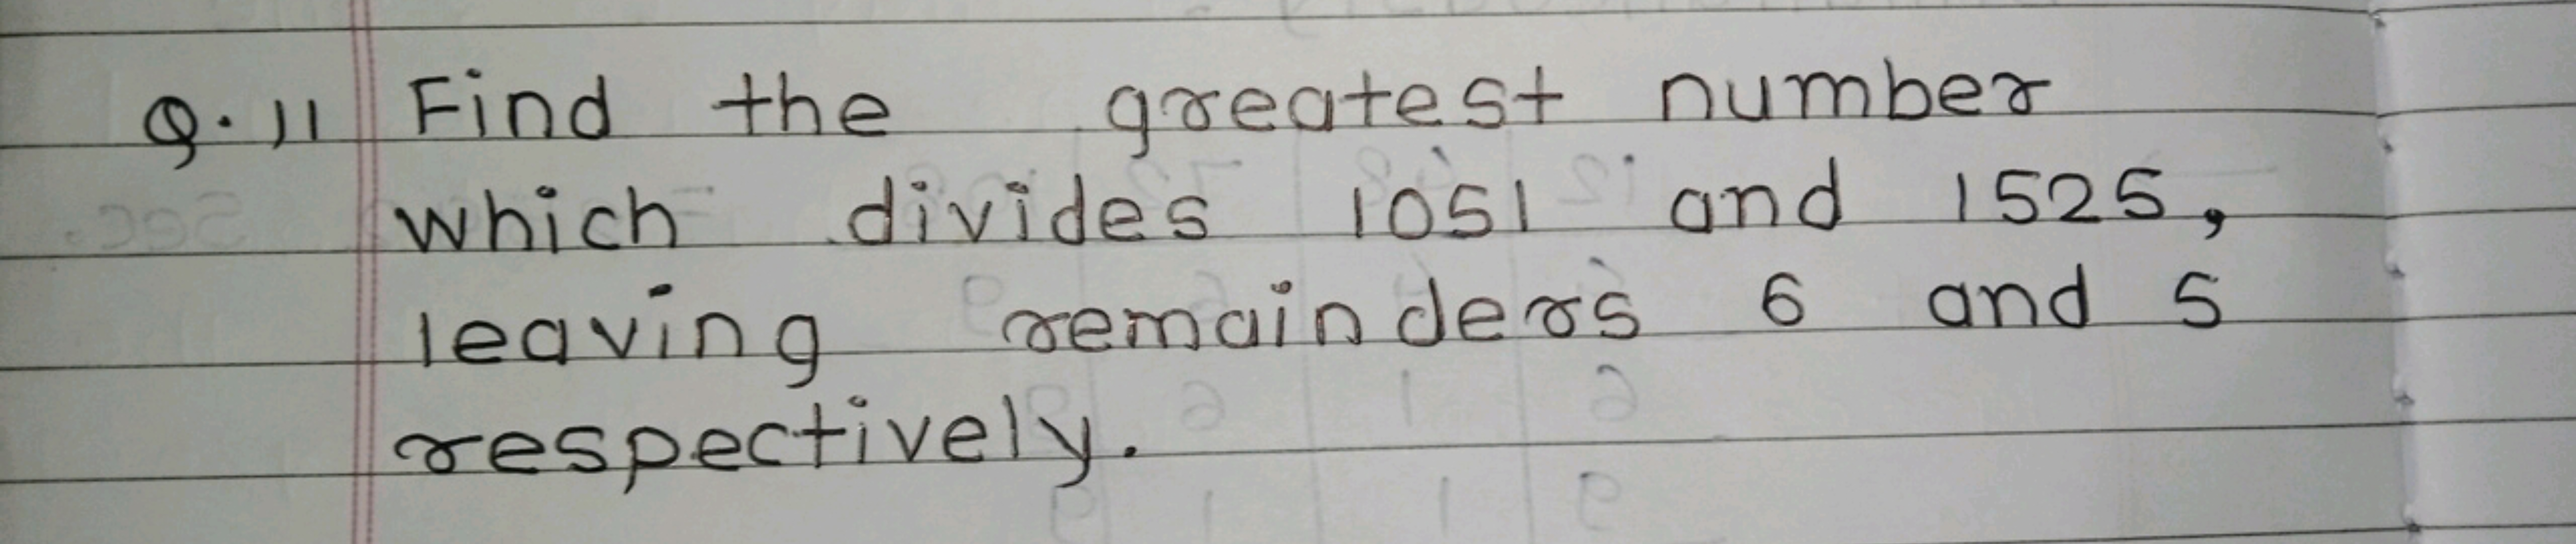 Q.11 Find the greatest number
which divides 1051 and 1525,
leaving remainders 6 and 5
respectively.